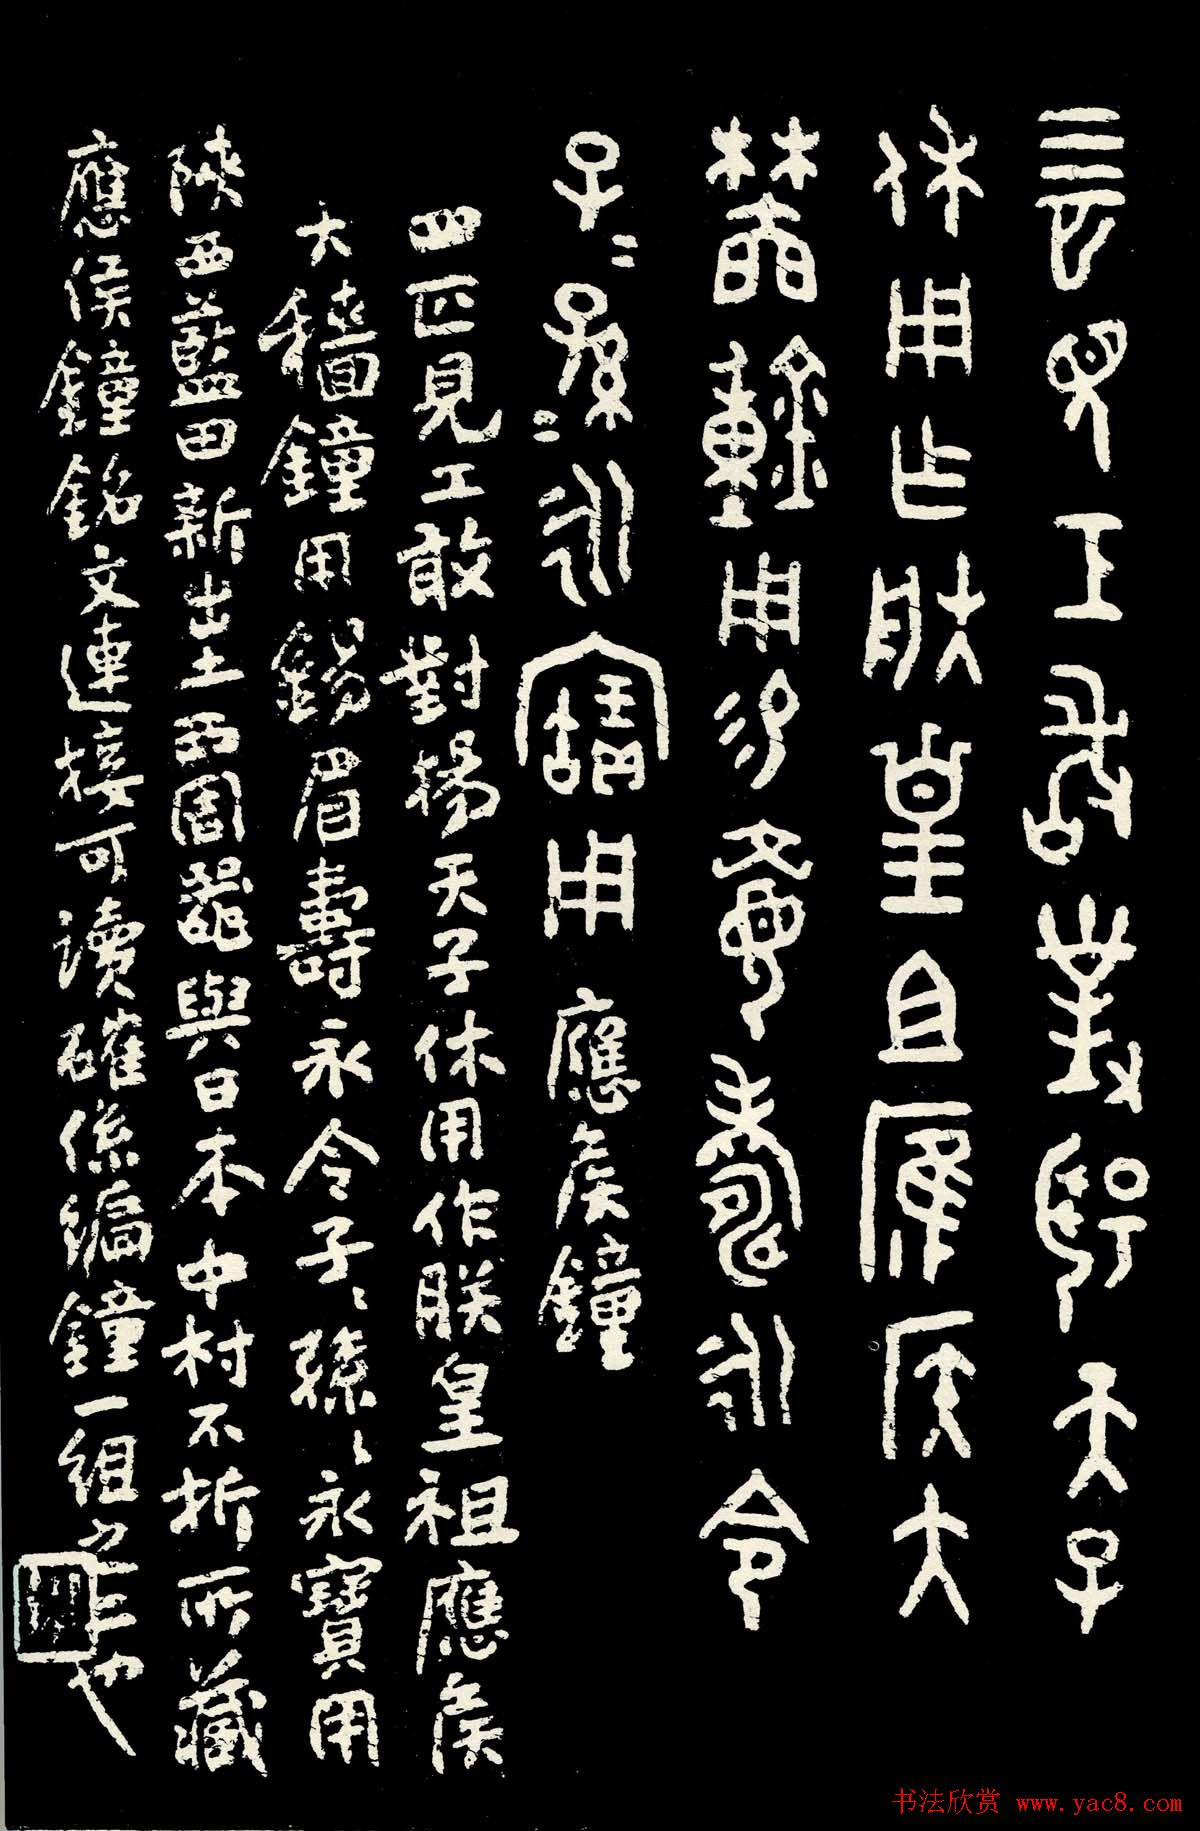 亖匹見工敢對揚天子
休用乍朕皇且應侯大
鐘用易眉壽永令
子〻孫〻永寶用 應侯鐘
四匹見工敢對揚天子休用作朕皇祖應侯
大穡鐘用錫眉壽永令子〻孫〻永寶用
陝西藍田新出土西周器與日本中村不折所藏
應侯鐘銘文連接可讀確係編鐘一組之二也
书法欣赏 www.yac8.com